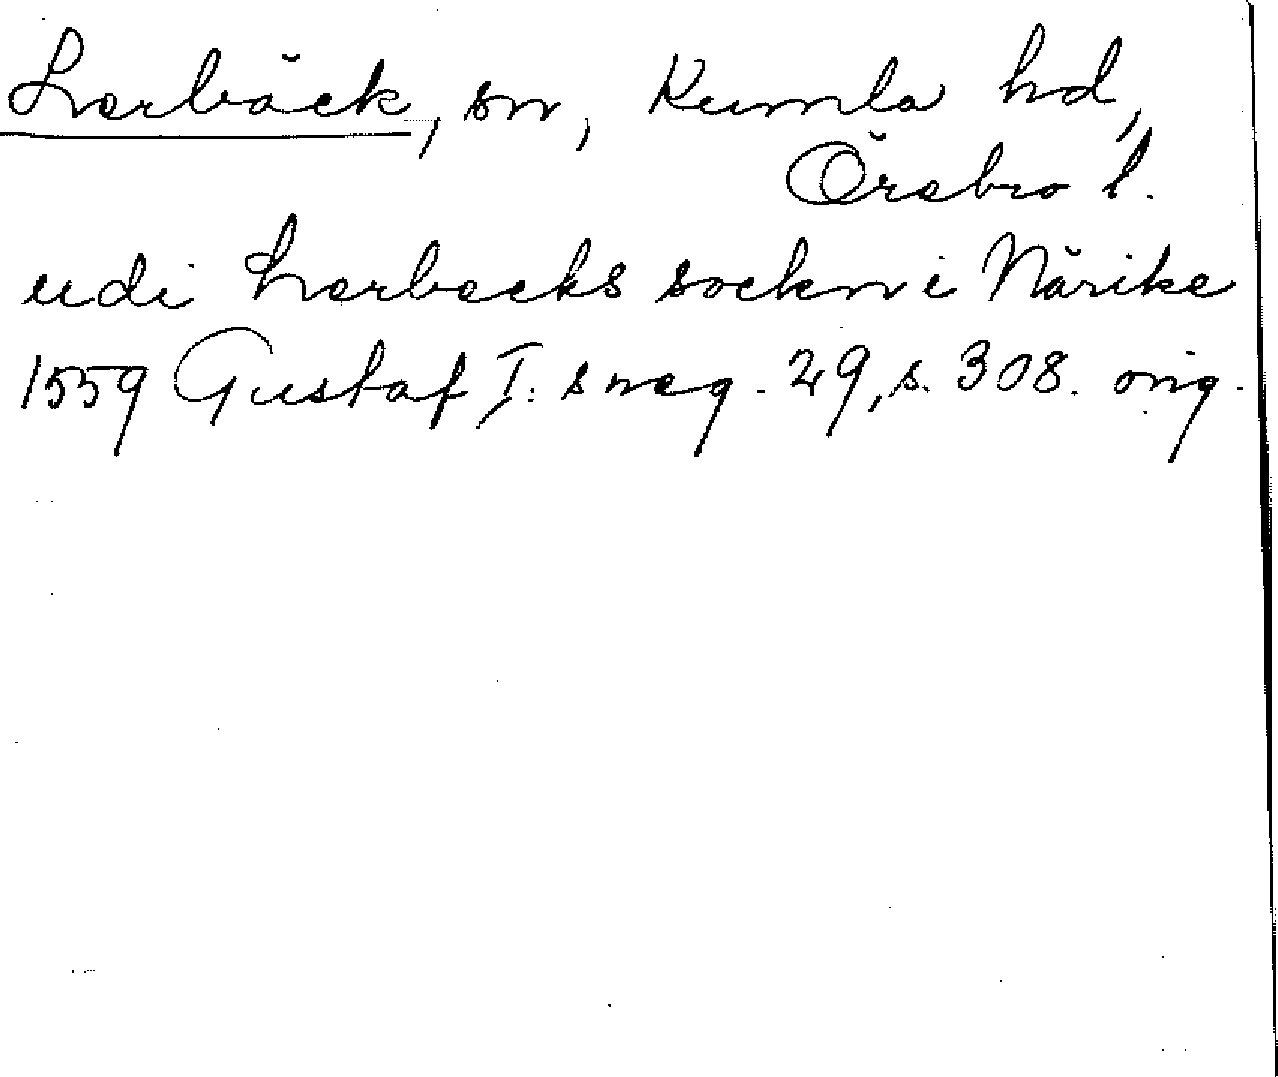 Lerbäck, sn, Kumla hd,
Örebro l.
udi Lerbecks sockn i Närike
1559 Gustaf I:s reg. 29, s. 308. orig.